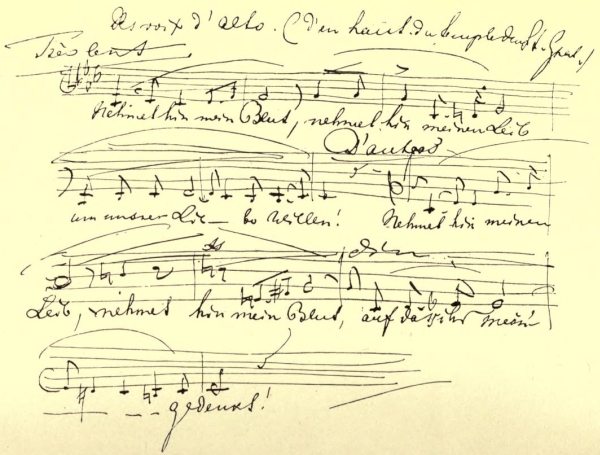 Des voix d'alto. (d'en haut du temple du St. Graal.)
Très lent
Nehmet hin mein Blut, nehmet hin meinen Leib
D'autres
um unsrer Lie— be willen! Nehmet hin meinen
Leib, nehmet hin mein Blut, auf dass ihr mein'
dim
gedenkt!